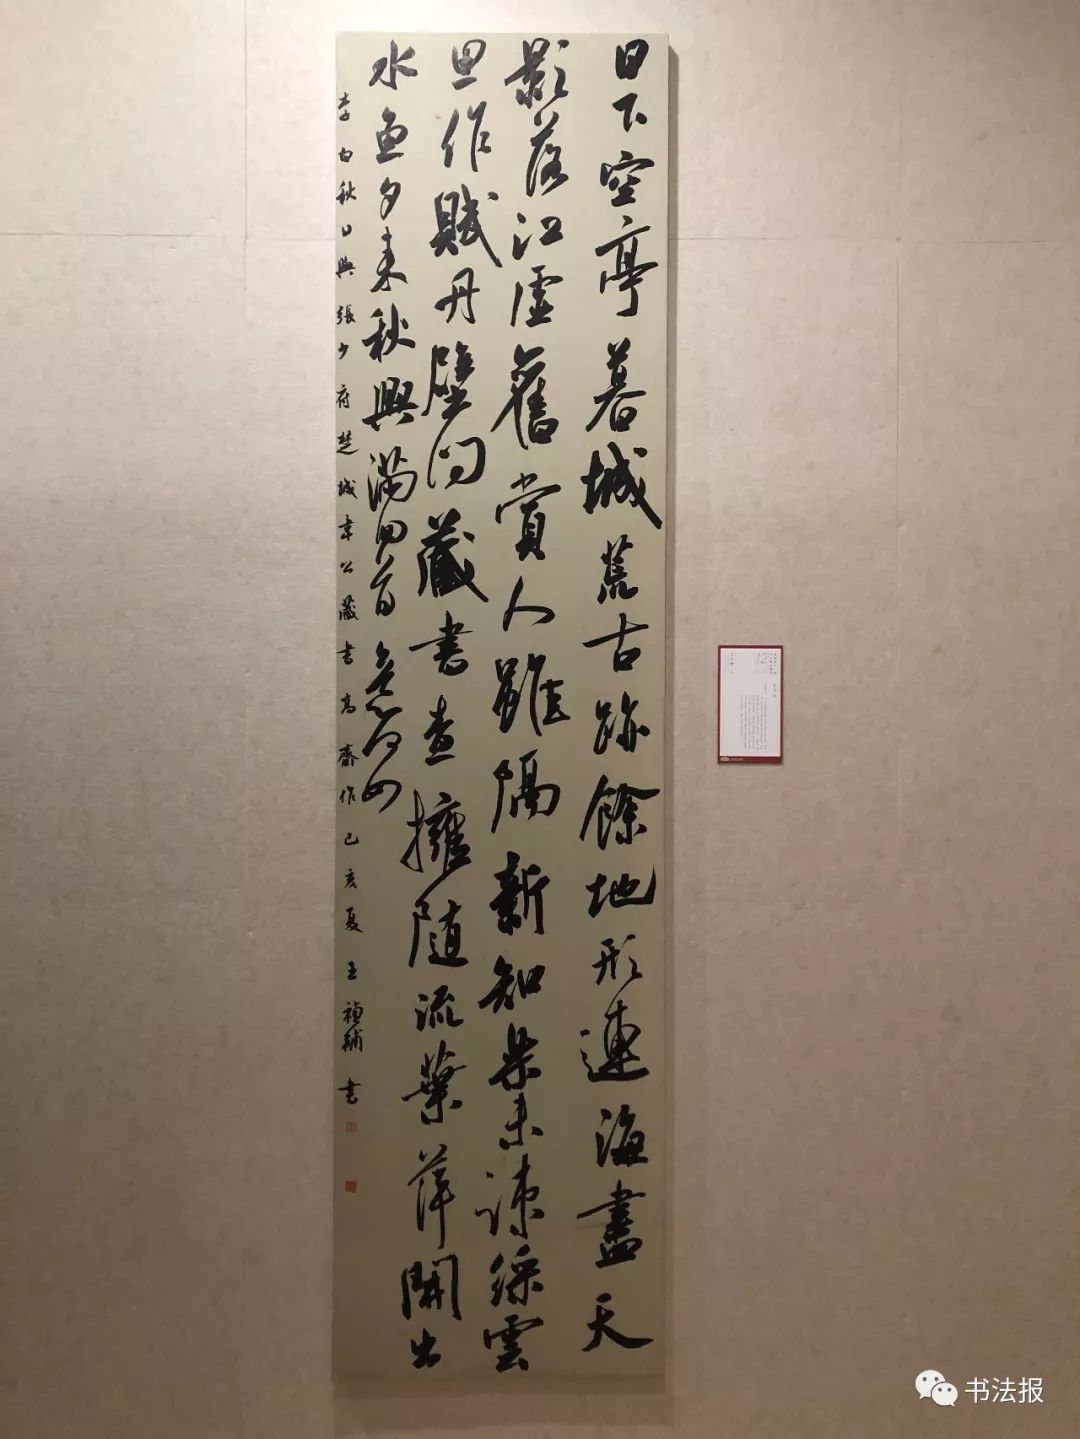 日下空亭暮城荒古跡餘地形連海盡天
影落江虛舊賞人雖隔新知樂未疎綵雲
思作賦丹壁間藏書查擁隨流葉萍開出
水魚夕來秋興滿回首意何如
李白秋日與張少府楚城韋公藏書高齋作己亥夏王禎輔書
12
书法报